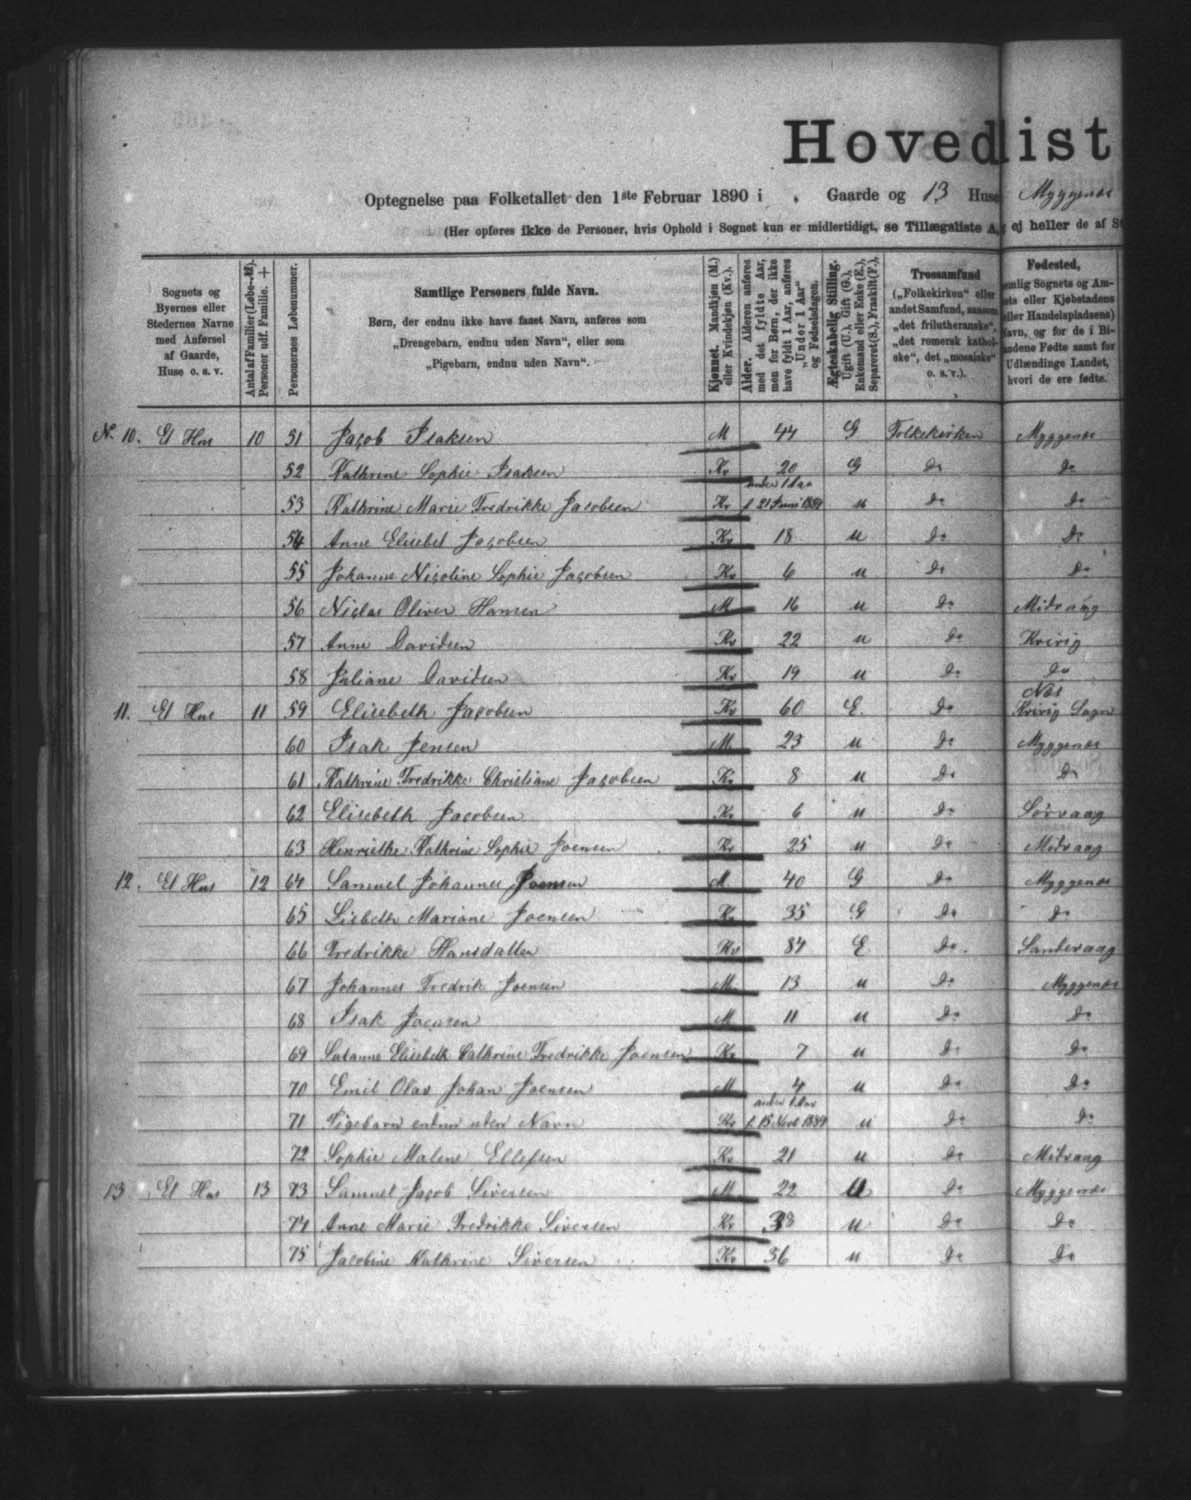 Hovedlist
Optegnelse paa Folketallet den 1ste Februar 1890 i , Gaarde og 13 Huse Myggenæs
(Her opføres ikke de Personer, hvis Ophold i Sognet kun er midlertidigt, se Tillægsliste A, ej heller de af S
Sognets og Byernes eller Stedernes Navne med Anførsel af Gaarde, Huse o. s. v.
Antal af Familier (Løbe-№). Personer udf. Familie. +
Personernes Løbenummer.
Samtlige Personers fulde Navn.
Børn, der endnu ikke have faaet Navn, anføres som
„Drengebarn, endnu uden Navn“, eller som
„Pigebarn, endnu uden Navn“.
Kjønnet. Mandkjøn (M.) eller Kvindekjøn (Kv.).
Alder. Alderen anføres med det fyldte Aar, men for Børn, der ikke have fyldt 1 Aar, anføres „Under 1 Aar“ og Fødselsdagen.
Ægteskabelig Stilling. Ugift (U.), Gift (G.), Enkemand eller Enke (E.), Separeret (S.), Fraskilt (F.).
Trossamfund („Folkekirken“ eller andet Samfund, saasom „det frilutheranske“, „det romersk katholske“, det „mosaiske“ o. s. v.).
Fødested, nemlig Sognets og Amtets eller Kjøbstadens (eller Handelspladsens) Navn, og for de i Bilandene Fødte samt for Udlændinge Landet, hvori de ere fødte.
N. 10. Et Hus 10 51 Jacob Isaksen M 44 G Folkekirken Myggenæs
52 Kathrine Sophie Isaksen Kv 20 G Do Do
53 Kathrine Marie Fredrikke Jacobsen Kv under 1 Aar f. 21 Juni 1889 u Do Do
54 Anne Elisebet Jacobsen Kv 18 u Do Do
55 Johanne Nicoline Sophie Jacobsen Kv 6 u Do Do
56 Niclas Oliver Hansen M 16 u Do Midvaag
57 Anne Davidsen Kv 22 u Do Kvivig
58 Juliane Davidsen Kv 19 u Do Do
11. Et Hus 11 59 Elisebeth Jacobsen Kv 60 E. Do Næs Kvivig Sogn
60 Isak Jensen M 23 u Do Myggenæs
61 Kathrine Fredrikke Christiane Jacobsen Kv 8 u Do Do
62 Elisebeth Jacobsen Kv 6 u Do Sørvaag
63 Henriethe Kathrine Sophie Joensen Kv 25 u Do Midvaag
12. Et Hus 12 64 Samuel Johannes Joensen M. 40 G Do Myggenæs
65 Lisbeth Mariane Joensen Kv 35 G Do Do
66 Fredrikke Hansdatter Kv 84 E Do Sandevaag
67 Johannes Fredrik Joensen M 13 u Do Myggenæs
68 Isak Joensen M 11 u Do Do
69 Susanne Elisebeth Cathrine Fredrikke Joensen Kv 7 u Do Do
70 Emil Olav Johan Joensen M 4 u Do Do
71 Pigebarn endnu uden Navn Kv under 1 Aar f. 15 Novb 1889 u Do Do
72 Sophie Malene Ellefsen Kv 21 u Do Midvaag
13 Et Hus 13 73 Samuel Jacob Sivertsen M 22 U Do Myggenæs
74 Anne Marie Fredrikke Sivertsen Kv 38 u Do Do
75 Jacobine Kathrine Sivertsen Kv 36 u Do Do